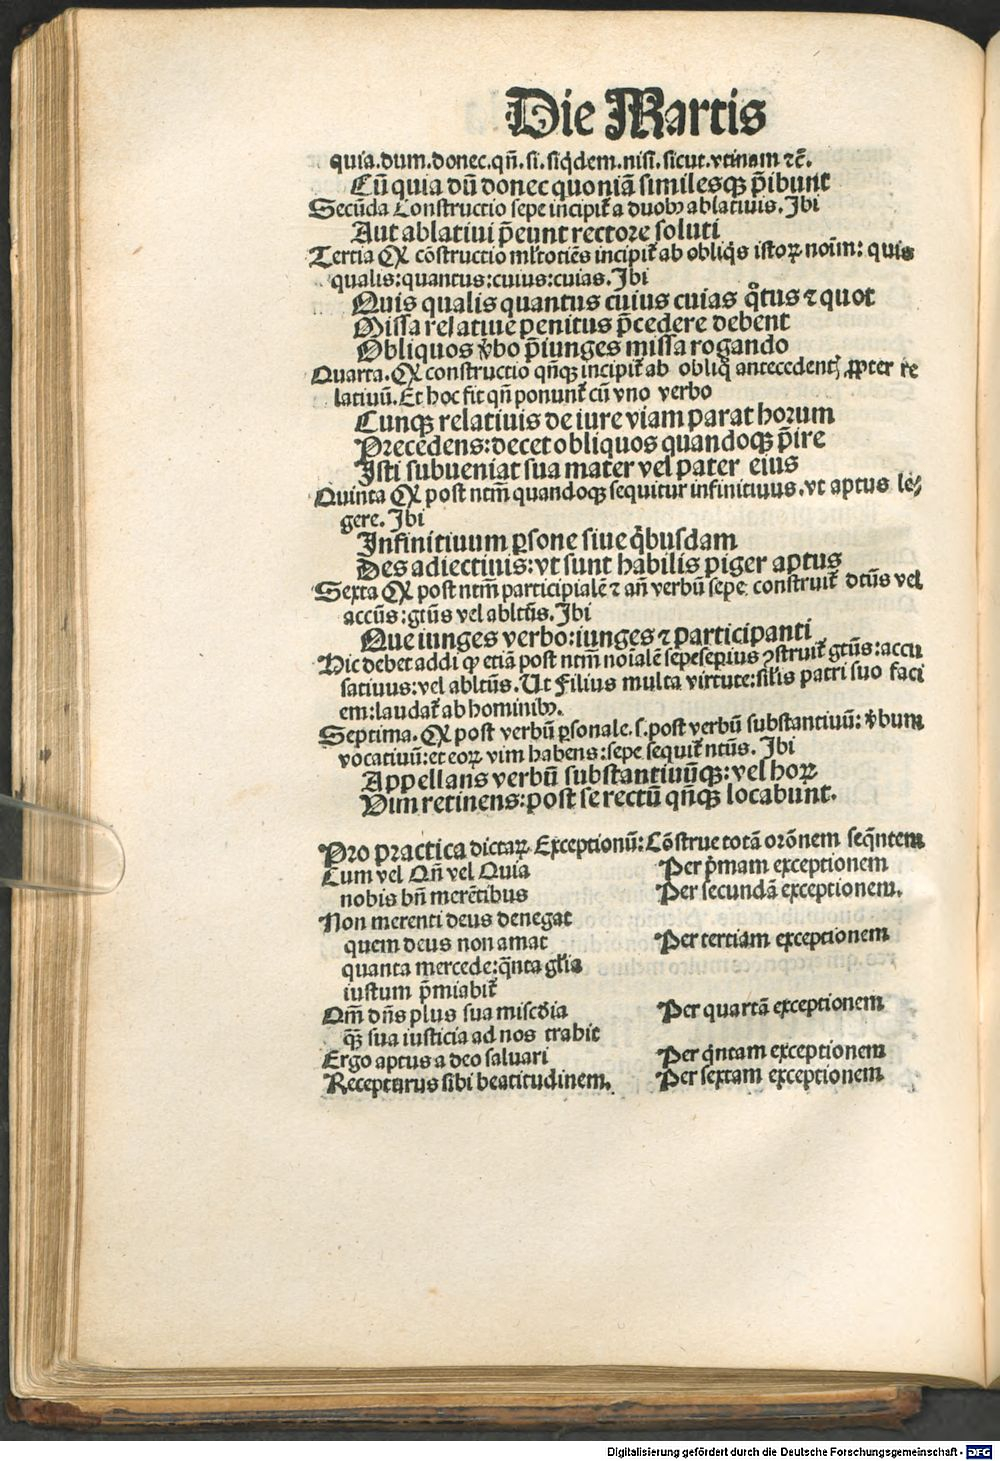 Die Martis
quia.dum.donec.qn̄.si.siq̇dem.nisi.sicut.vtinam ⁊c̄.
Cū quia dū donec quoniā similesqꝫ p̄ibunt
Secūda Constructio sepe incipit᷑ a duobꝰ ablatiuis. Ibi
Aut ablatiui p̄eunt rectore soluti
Tertia Qꝙ cōstructio ml̕totiēs incipit᷑ ab obliq̇s istoꝝ noīm: quis
qualis:quantus:cuius:cuias. Ibi
Quis qualis quantus cuius cuias q̊tus ⁊ quot
Missa relatiue penitus p̄cedere debent
Obliquos v̄bo p̄iunges missa rogando
Quarta. Qꝙ constructio qn̄qꝫ incipit᷑ ab obliq̊ antecedentꝭ ꝓpter re
latiuū. Et hoc fit qn̄ ponunt᷑ cū vno verbo
Cunqꝫ relatiuis de iure viam parat horum
Precedens:decet obliquos quandoqꝫ p̄ire
Isti subueniat sua mater vel pater eius
Quinta Qꝙ post ntm̄ quandoqꝫ sequitur infinitiuus.vt aptus le⸗
gere. Ibi
Infinitiuum ꝑsone siue q̇busdam
Des adiectiuis:vt sunt habilis piger aptus
Sexta Qꝙ post ntm̄ participialē ⁊ an̄ verbū sepe construit᷑ dtūs vel
accūs:gtūs vel abltūs. Ibi
Que iunges verbo:iunges ⁊ participanti
Hic debet addi ꝙ etiā post ntm̄ noīalē sepesepius ꝯstruit᷑ gtūs:accu
satiuus:vel abltūs. Ut Filius multa virtute:sil̕is patri suo faci
em:laudat᷑ ab hominibꝰ.
Septima. Qꝙ post verbū ꝑsonale.s.post verbū substantiuū: v̄bum
vocatiuū:et eoꝝ vim habens:sepe sequit᷑ ntūs. Ibi
Appellans verbū substantiuūqꝫ:vel hoꝝ
Vim retinens:post se rectū qn̄qꝫ locabunt.
Pro practica dictaꝝ Exceptionū:Cōstrue totā orōnem seq̄ntem
Cum vel Qn̄ vel Quia Per p̄mam exceptionem
nobis bn̄ merētibus Per secundā exceptionem.
Non merenti deus denegat
quem deus non amat Per tertiam exceptionem
quanta mercede:q̄nta gl̕ia
iustum p̄miabit᷑
Om̄ dn̄s plus sua misc̄dia Per quartā exceptionem
qꝫ̄ sua iusticia ad nos trahit
Ergo aptus a deo saluari Per q̇ntam exceptionem
Recepturus sibi beatitudinem. Per sextam exceptionem
Digitalisierung gefördert durch die Deutsche Forschungsgemeinschaft - DFG